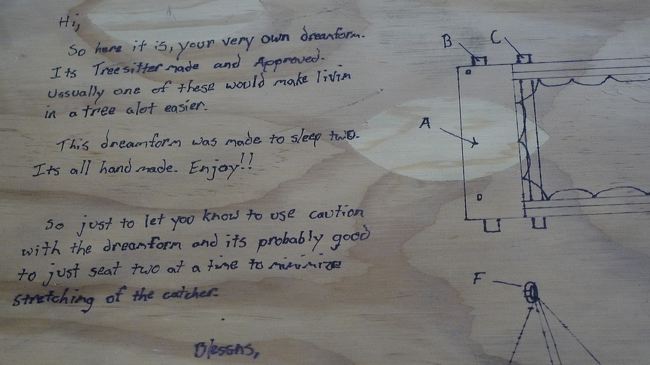 Hi,
So here it is, your very own dreamform.
Its Treesitter made and Approved.
Usually one of these would make livin
in a tree alot easier.
This dreamform was made to sleep two.
Its all hand made. Enjoy!!
So just to let you know to use caution
with the dreamform and its probably good
to just seat two at a time to minimize
stretching of the catcher.
Blessns,
B C
A
F